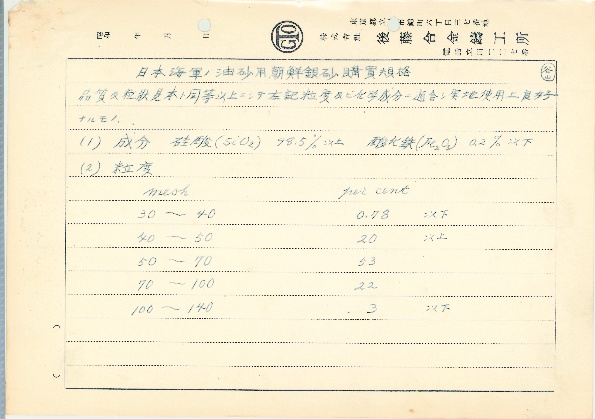 昭和 年 月 日
GTO
東京都立川市錦町六丁目三七番地
株式会社 後藤合金鋳工所
電話立川二一二七番
日本海軍ノ油砂用朝鮮銀砂購買規格
品質及粒状見本ト同等以上ニシテ左記粒度及ビ化学成分ニ適合シ実地使用上良好
ナルモノ.
(1) 成分 硅酸(SiO2) 98.5% 以上 酸化鉄(Fe2O3) 0.2% 以下
(2) 粒度
mesh per cent
30 〜 40 0.78 以下
40 〜 50 20 以上
50 〜 70 53
70 〜 100 22
100 〜 140 .3 以下